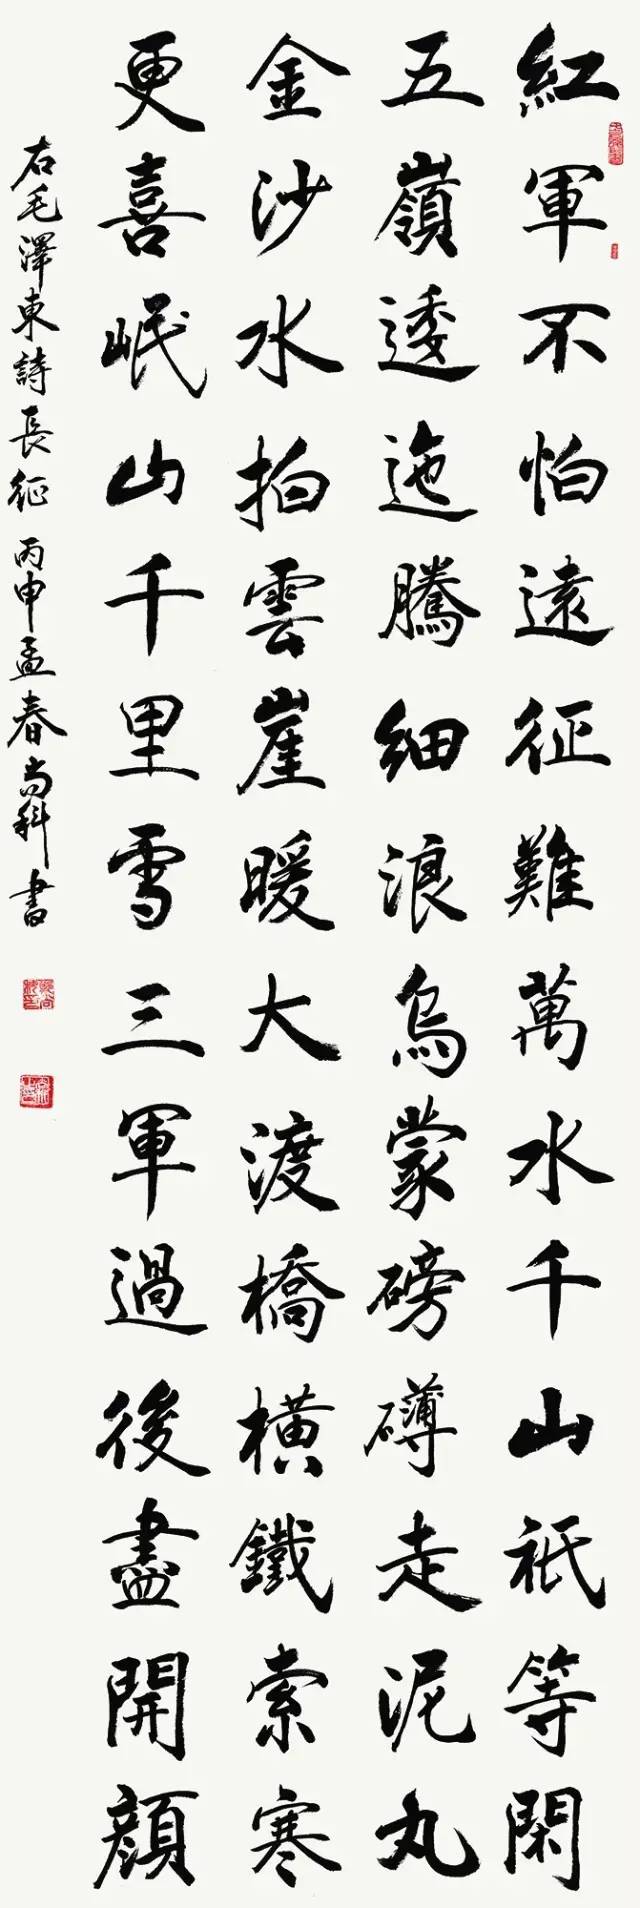 紅軍不怕遠征難萬水千山祇等閑
五嶺逶迤騰細浪烏蒙磅礴走泥丸
金沙水拍雲崖暖大渡橋橫鐵索寒
更喜岷山千里雪三軍過後盡開顏
右毛澤東詩長征丙申孟春尚科書